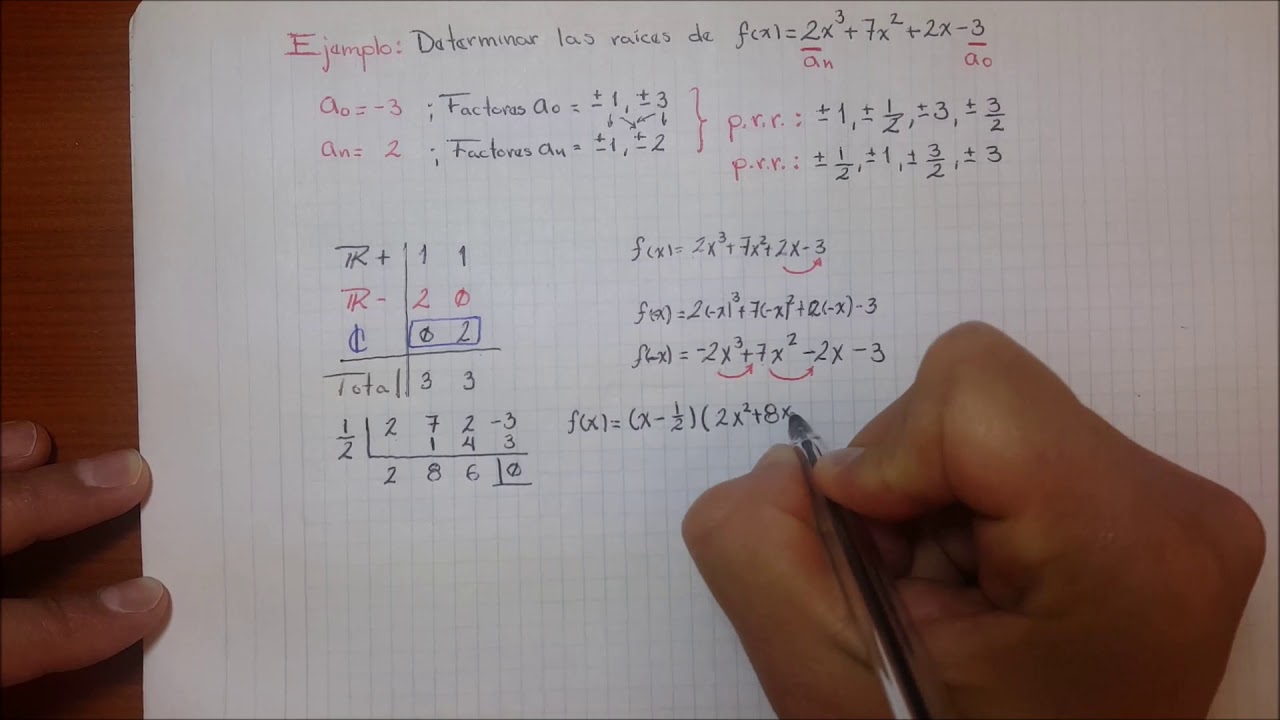 Ejemplo: Determinar las raíces de f(x)=2x³+7x²+2x-3
an a0
a0=-3 ; Factores a0= ±1, ±3
an= 2 ; Factores an= ±1, ±2
p.r.r.: ±1, ±1/2, ±3, ±3/2
p.r.r.: ±1/2, ±1, ±3/2, ±3
ℝ+ | 1 1
ℝ- | 2 0
ℂ | 0 2
Total | 3 3
f(x)= 2x³+7x²+2x-3
f(-x)=2(-x)³+7(-x)²+2(-x)-3
f(-x)= -2x³+7x²-2x-3
1/2 | 2 7 2 -3
1 4 3
2 8 6 |0
f(x)= (x-1/2)(2x²+8x